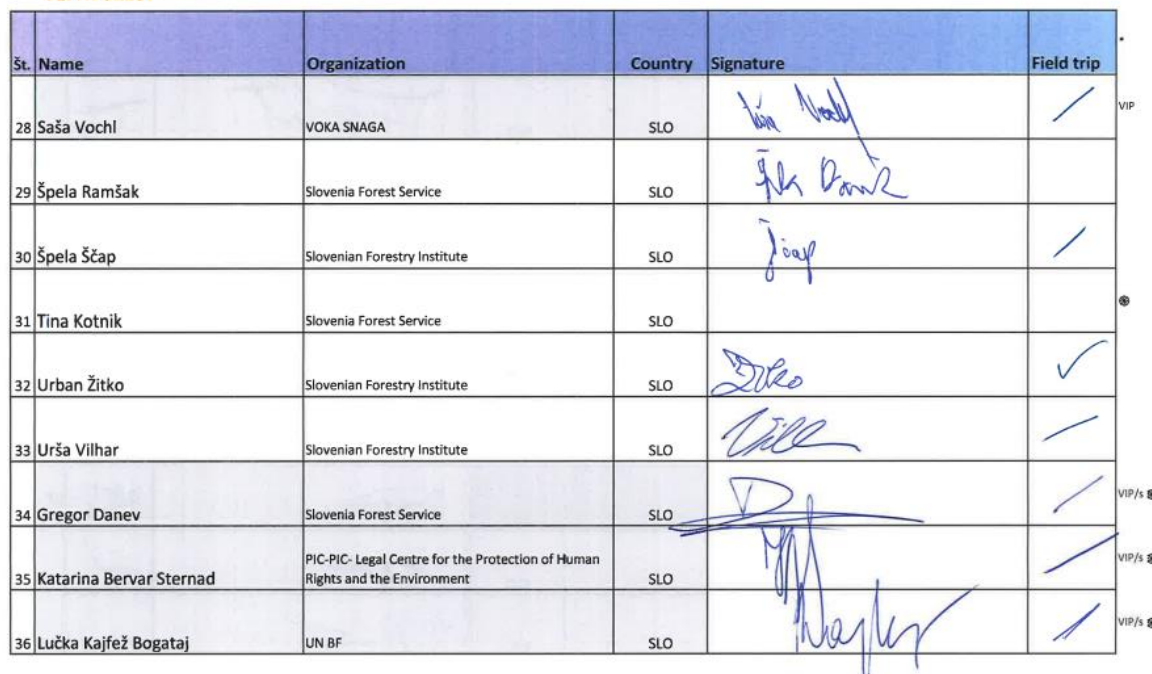 Št. Name Organization Country Signature Field trip
28 Saša Vochl VOKA SNAGA SLO VIP
29 Špela Ramšak Slovenia Forest Service SLO
30 Špela Ščap Slovenian Forestry Institute SLO Ščap
31 Tina Kotnik Slovenia Forest Service SLO
32 Urban Žitko Slovenian Forestry Institute SLO Žitko
33 Urša Vilhar Slovenian Forestry Institute SLO
34 Gregor Danev Slovenia Forest Service SLO VIP/s
PIC-PIC- Legal Centre for the Protection of Human
35 Katarina Bervar Sternad Rights and the Environment SLO VIP/s
36 Lučka Kajfež Bogataj UN BF SLO VIP/s